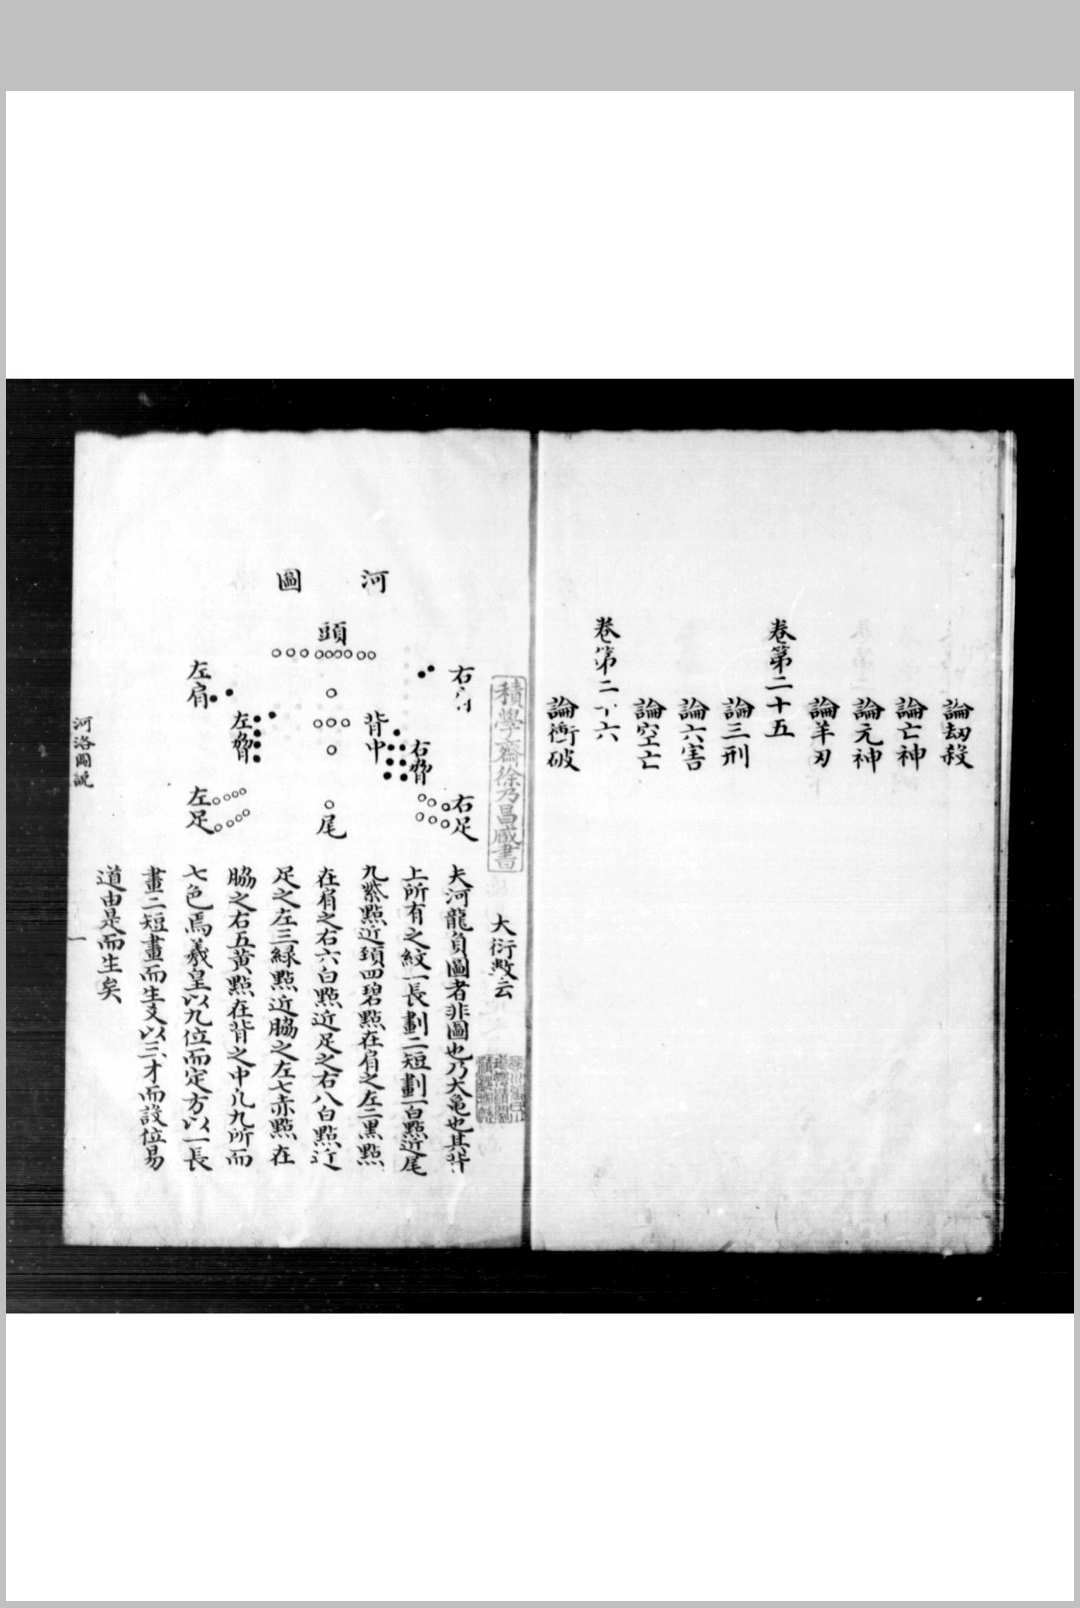 論劫殺
論亡神
論元神
論羊刃
卷第二十五
論三刑
論六害
論空亡
卷第二十六
論衝破
積學齋徐乃昌臧書
大衍數云
河圖
頭
右
右脅
右足
背中
尾
左肩
左脅
左足
夫河龍負圖者非圖也乃大龜也其背
上所有之紋一長劃二短劃一白點近尾
九紫點近頭四碧點在肩之左二黑點
在肩之右六白點近足之右八白點近
足之左三緑點近脇之左七赤點在
脇之右五黃點在背之中凡九所而
七色焉羲皇以九位而定方以一長
畫二短畫而生爻以三才而設位易
道由是而生矣
河洛圖說
一